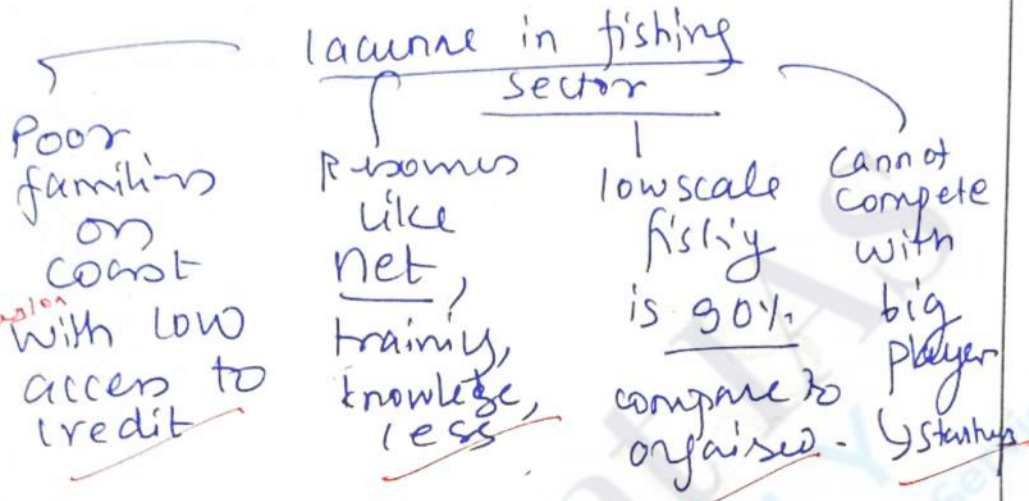 lacunae in fishing
sector
Poor
families
on
coast
with low
access to
credit
Resources
like
net,
training,
knowledge,
less
lowscale
fishig
is 90%
compare to
orgaised.
cannot
compete
with
big
player
↳ startups
IAS